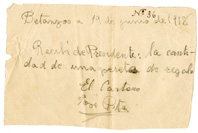 Nº 36
Betanzos a 19 de junio de 1918
Recibí de Presidente: la canti-
dad de una peseta de regalo
El Cartero
José